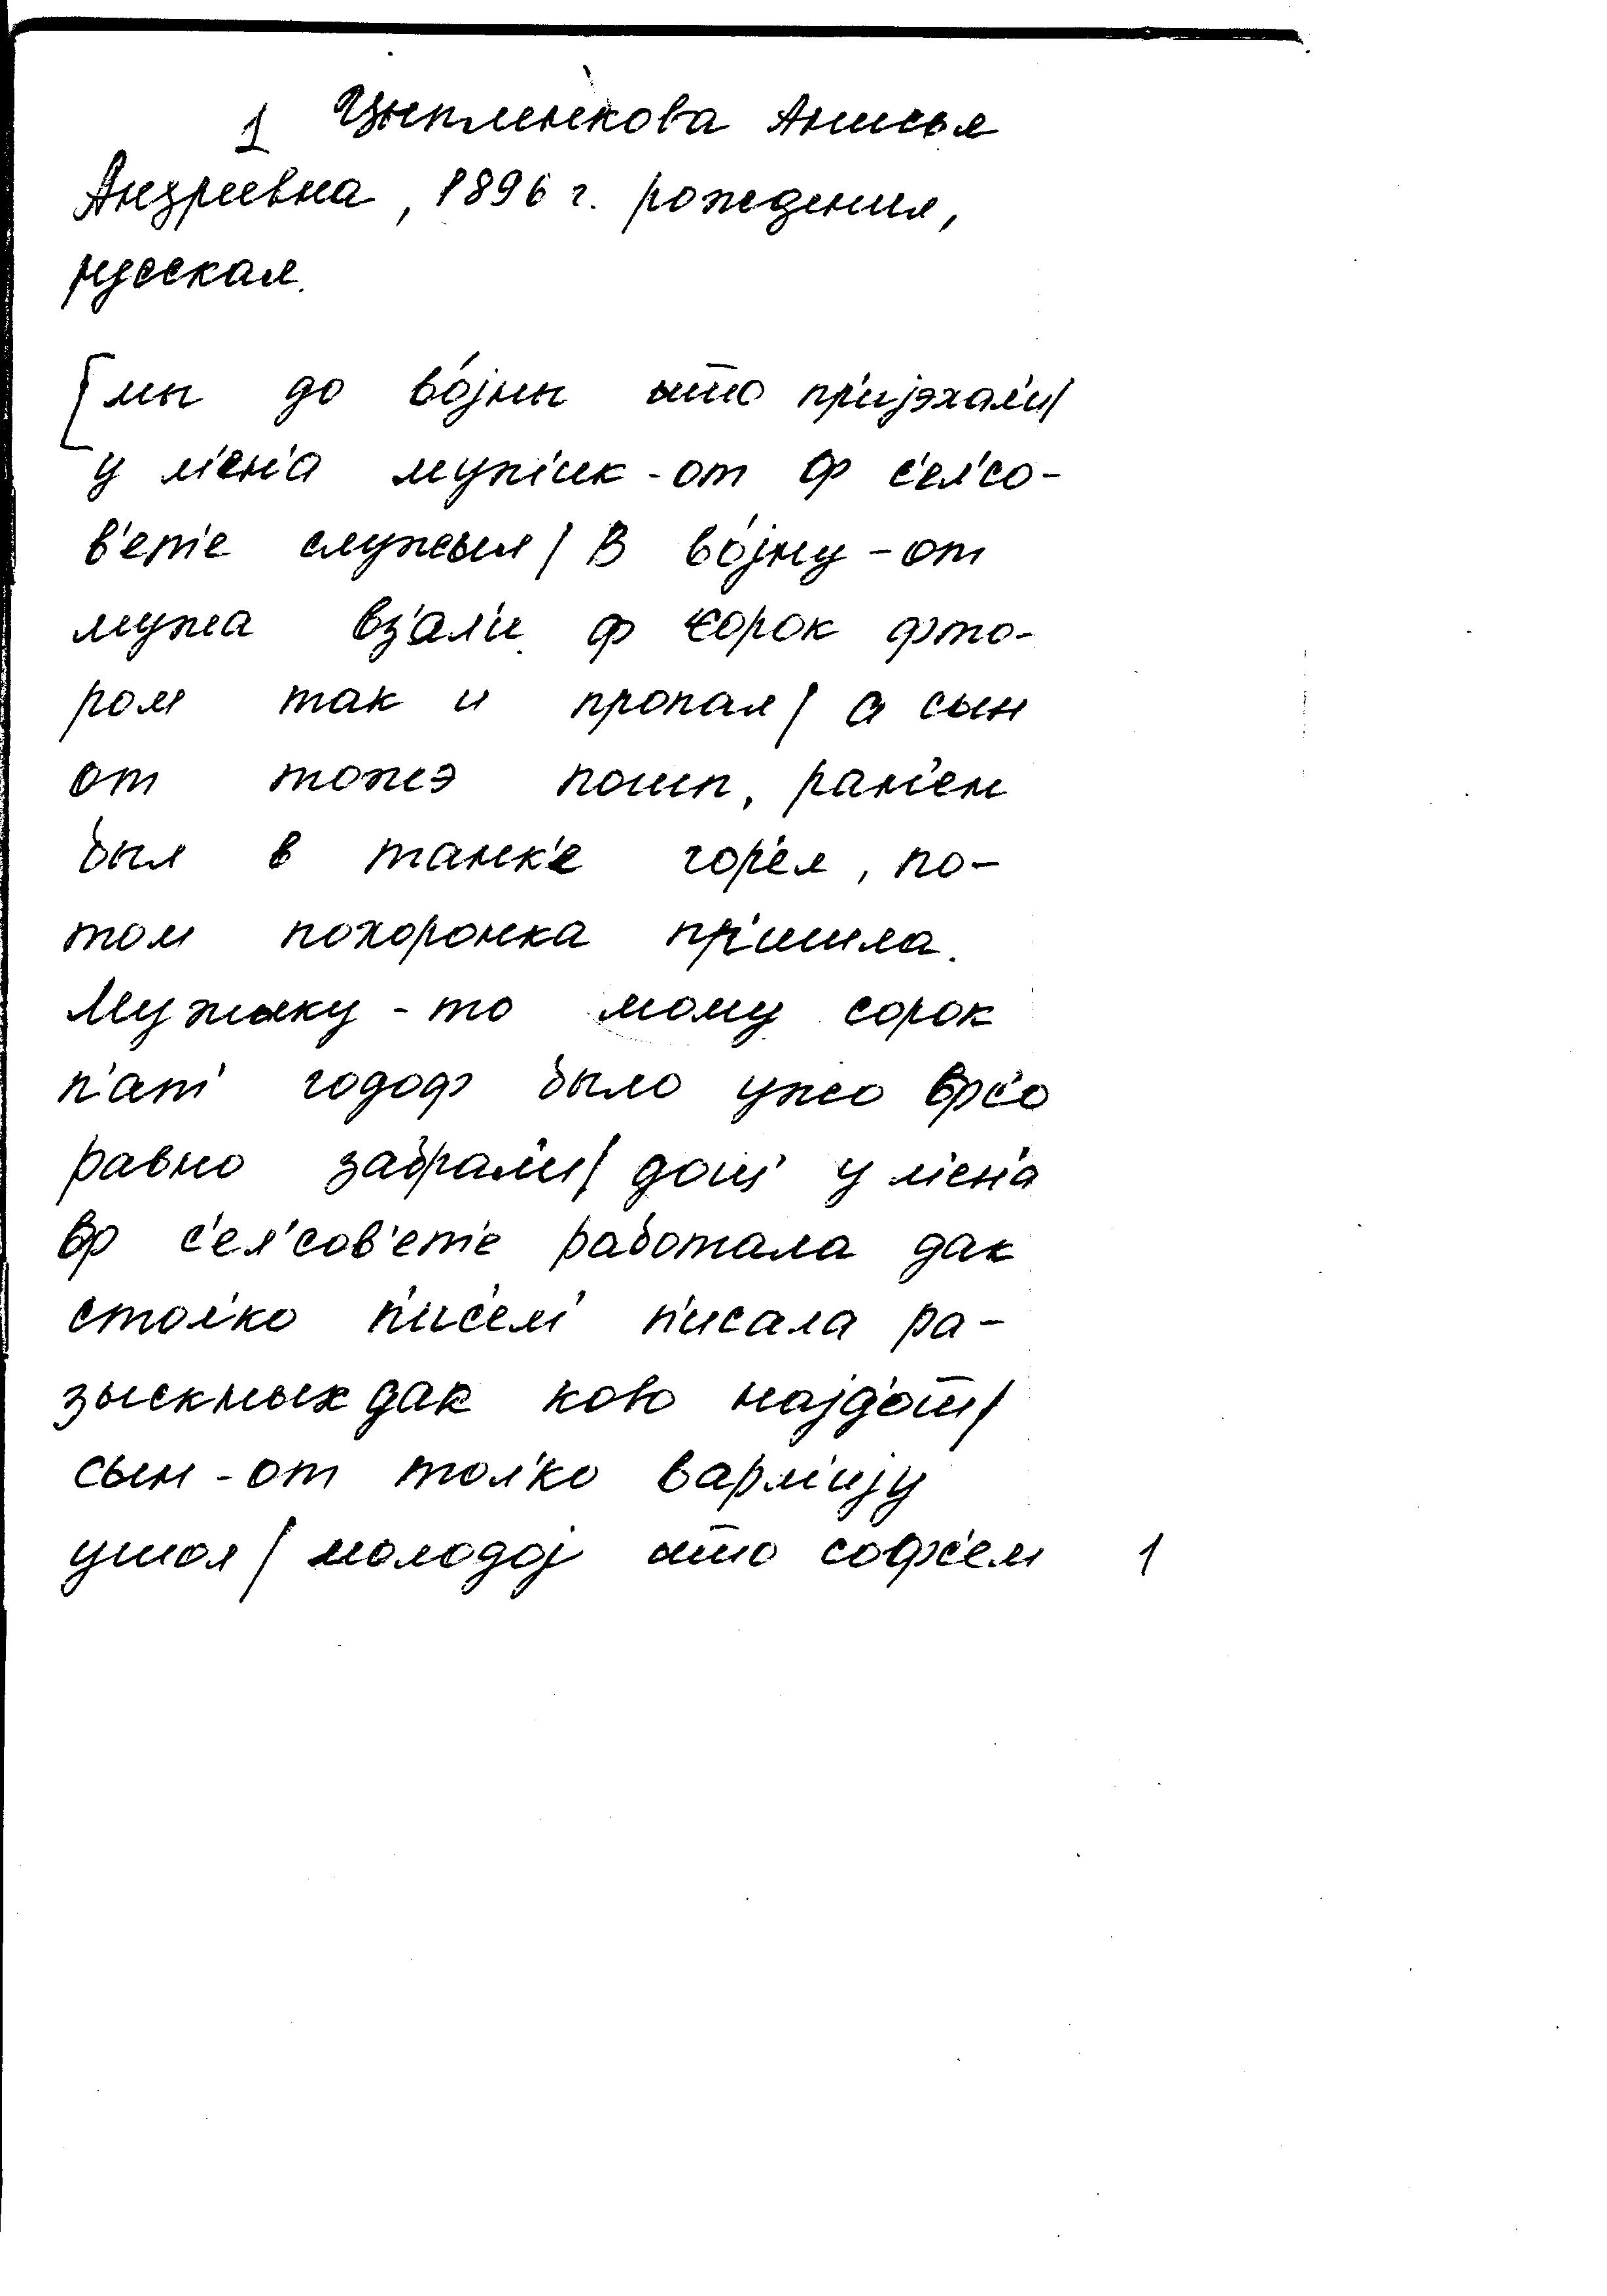 1 Цыпленкова Анисья
Андреевна, 1896 г. рождения,
русская.
[мы до во́јны што пр'ијэхал'и/
у м'ен'а мужик-от ф с'ел'со-
в'ет'е служыл/ В во́јну-от
мужа вз'ал'и. ф сорок фто-
ром так и пропал/ а сын
от тожэ поып, ран'ен
был в танк'е гор'ел, по-
том похоронка пр'ишла.
Мужыку-то мому сорок
п'ат' годоф было ужо фс'о
равно забрал'и/ дош' у м'ен'а
ф с'ел'сов'ет'е работала дак
стол'ко п'ис'ем п'исала ра-
зыскных дак ково најд'ош/
сын-от тол'ко в арм'ију
ушол/ молодој што софс'ем 1